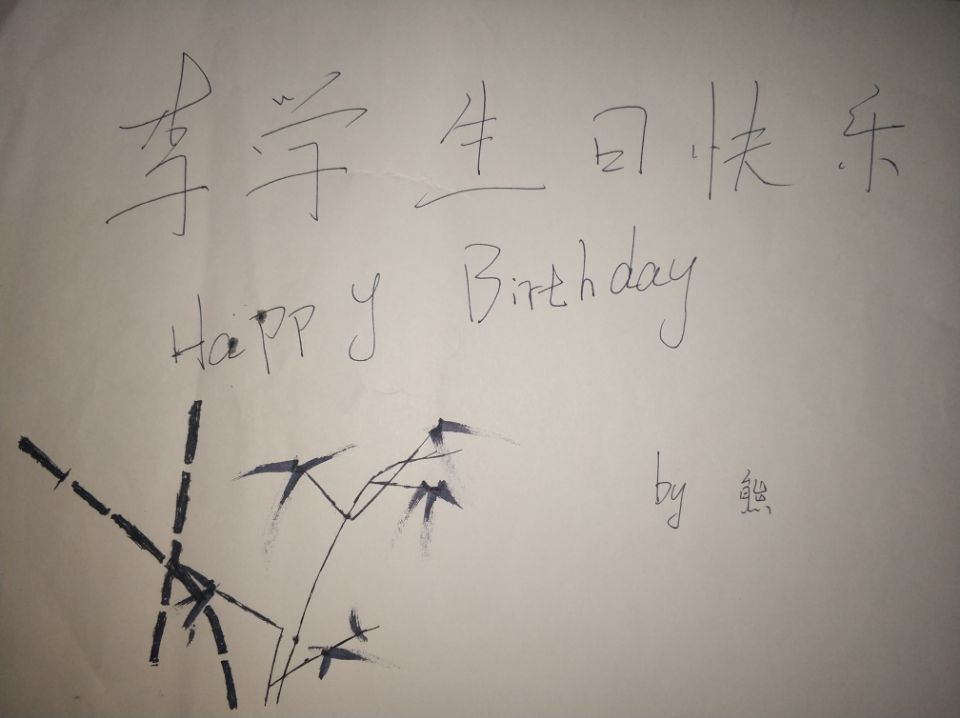 李学生日快乐
Happy Birthday
by 熊